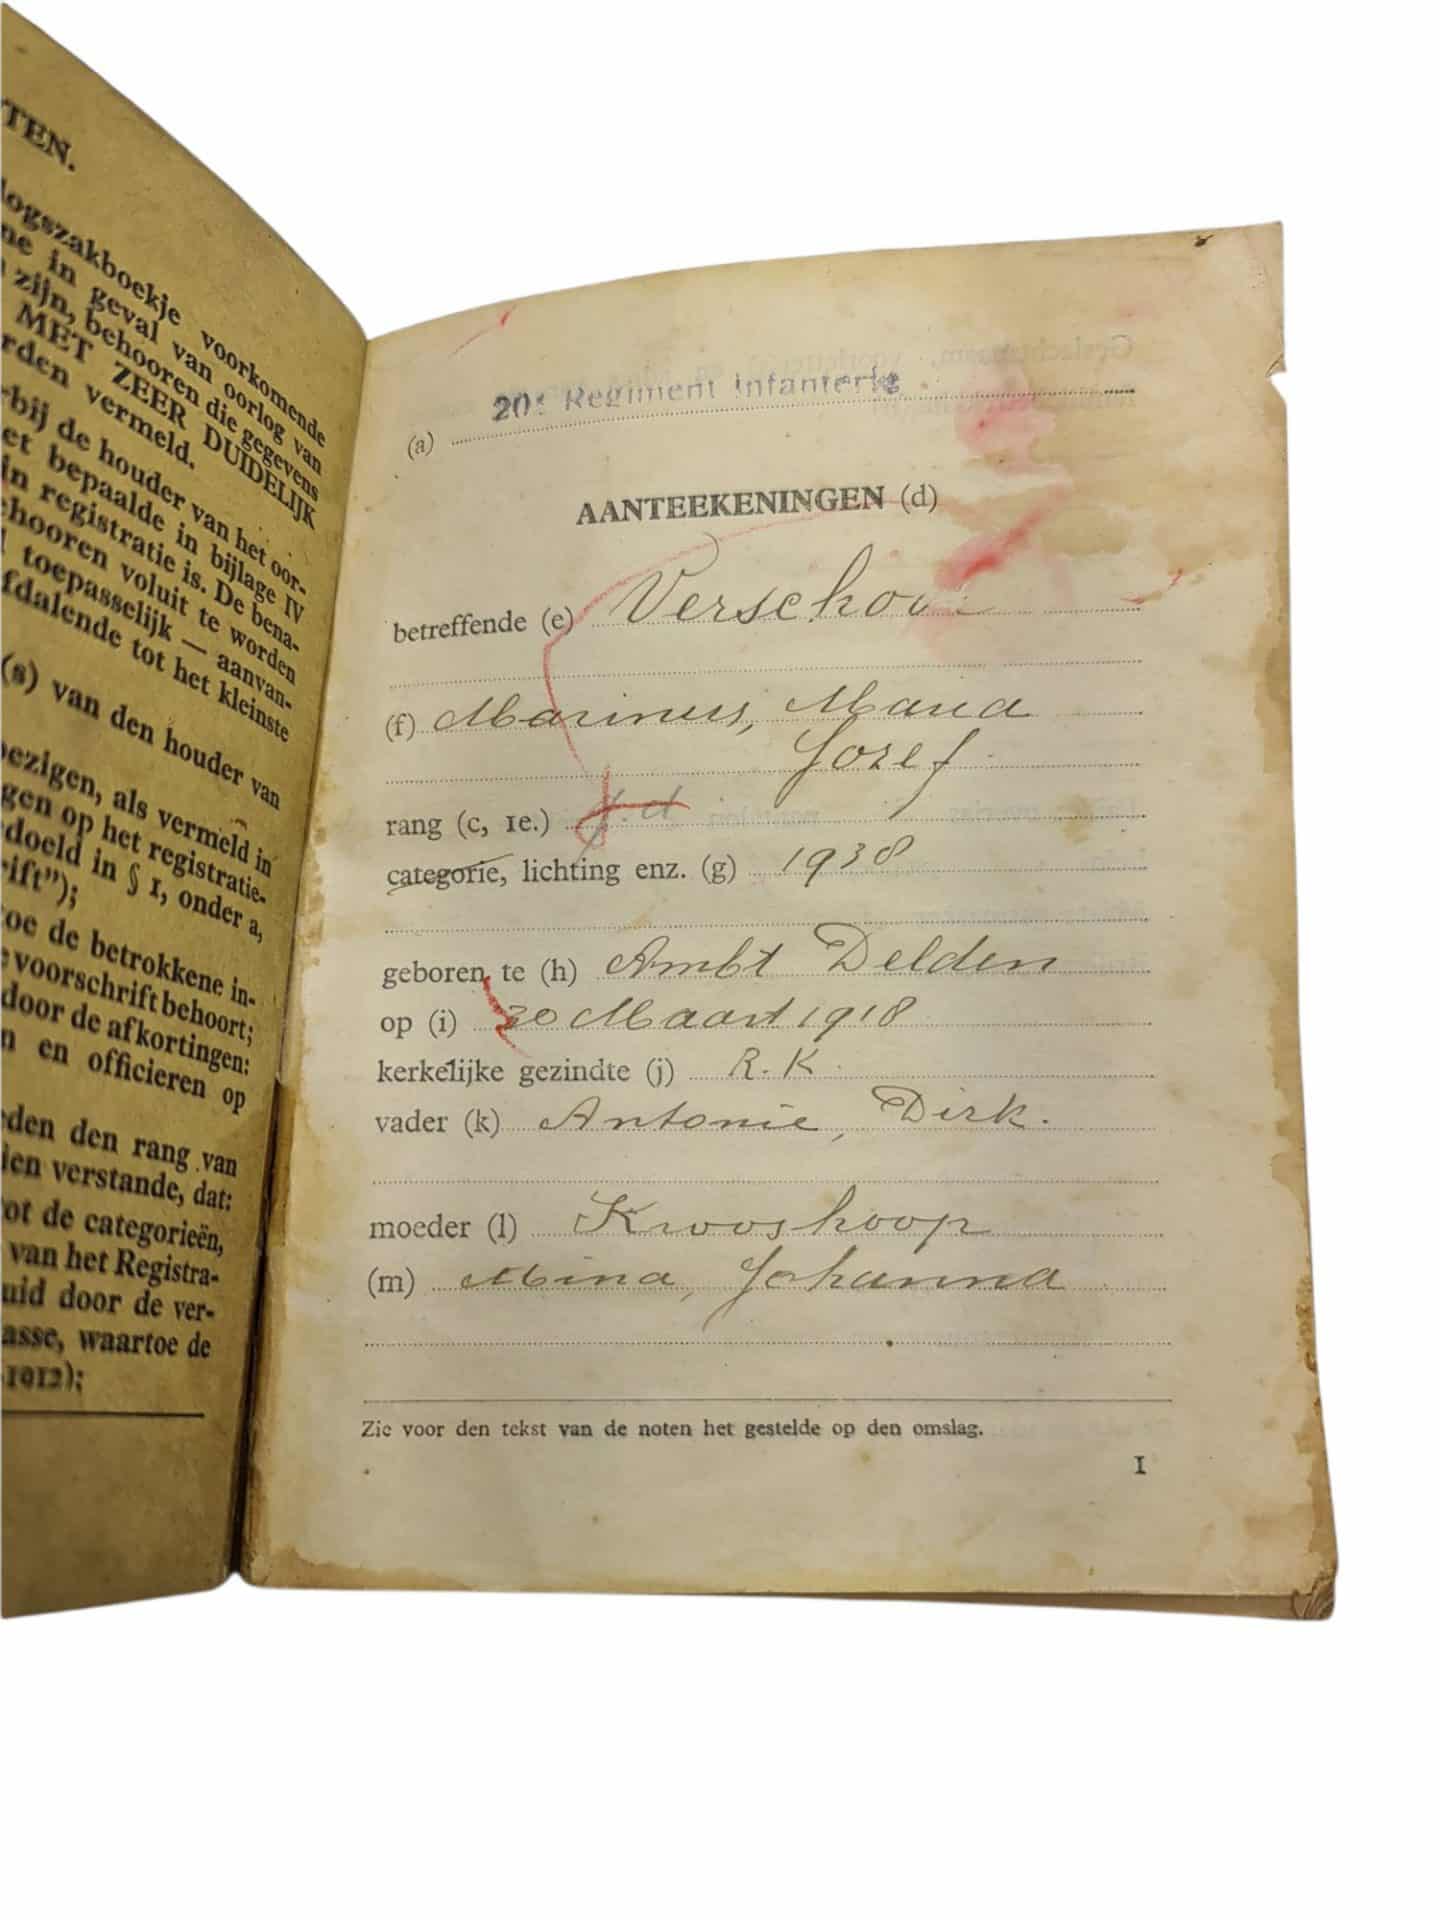 TEN.
logszakboekje voorkomende
ne in geval van oorlog van
zijn, behooren die gegevens
MET ZEER DUIDELIJK
rden vermeld.
rbij de houder van het oor-
et bepaalde in bijlage IV
in registratie is. De bena-
hooren voluit te worden
toepasselijk — aanvan-
fdalende tot het kleinste
(s) van den houder van
bezigen, als vermeld in
gen op het registratie-
doeld in § 1, onder a,
rift");
toe de betrokkene in-
voorschrift behoort;
door de afkortingen:
n en officieren op
eden den rang van
ien verstande, dat:
tot de categorieën,
van het Registra-
uid door de ver-
asse, waartoe de
1912);
(a) 20e Regiment Infanterie
AANTEEKENINGEN (d)
betreffende (e)
(f) Marinus, Maria
Jozef
rang (c, 1e.)
categorie, lichting enz. (g) 1938
geboren te (h) Ambt Delden
op (i) 30 Maart 1918
kerkelijke gezindte (j) R.K.
vader (k) Antonie, Dirk.
moeder (l) Krooshoop
(m) Mina, Johanna
Zie voor den tekst van de noten het gestelde op den omslag.
1